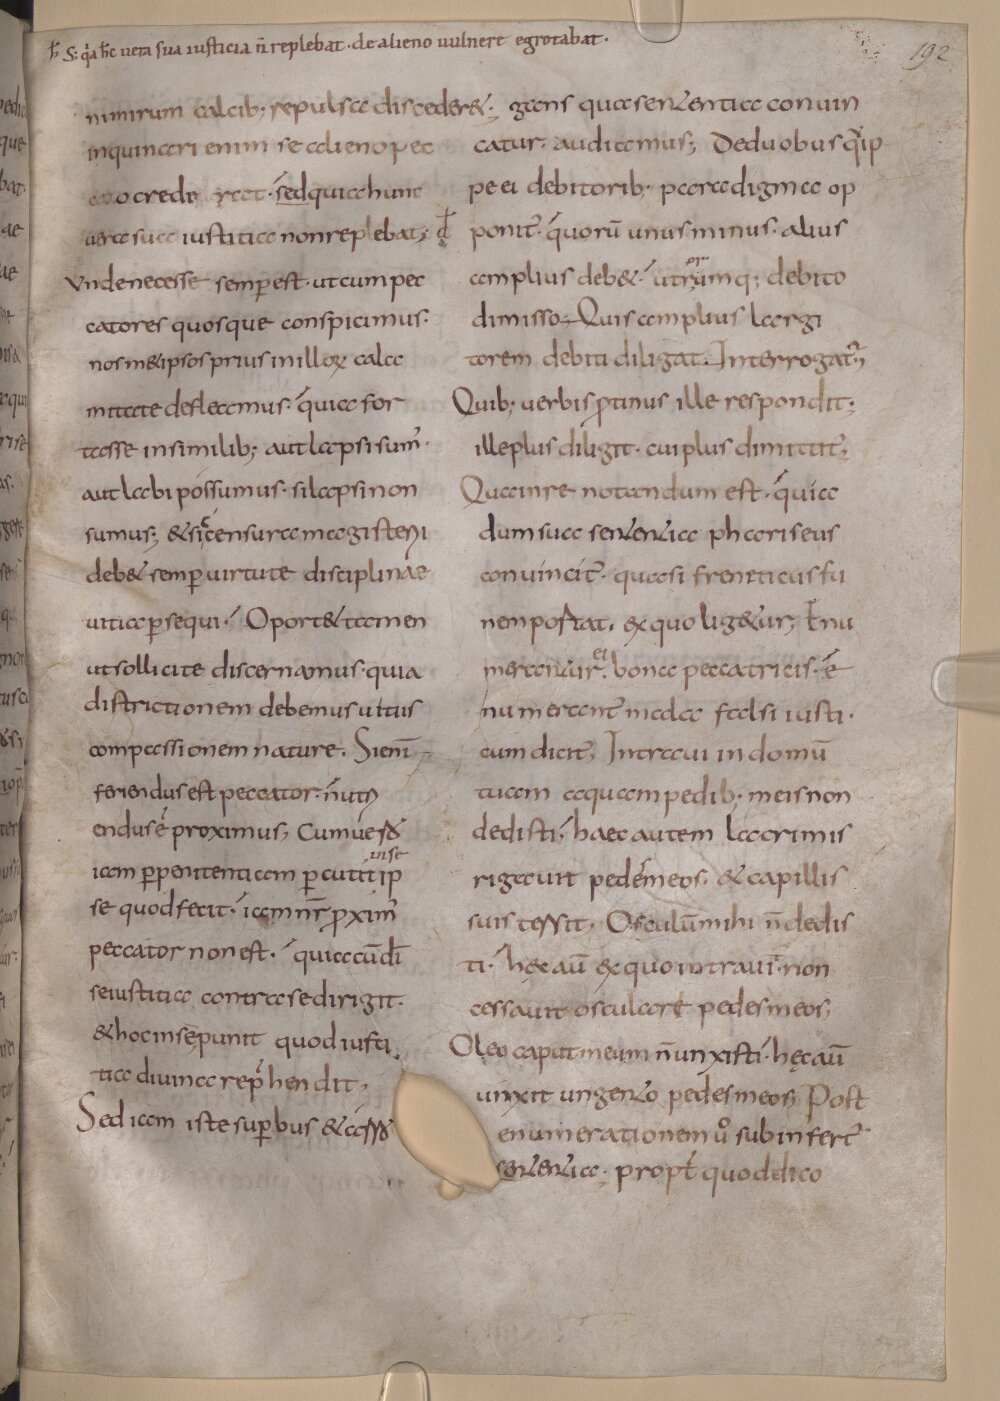 h̄ S; q̇a hc̄ uera sua iusticia n̄ replebat · de alieno uulnere egrotabat ·
192
nimirum calcib; repulsa disceder&;
inquinari enim se alieno pec
cato crede r&t · sed quia hunc
uera sua iustitia non replebat; d̄
Vnde necesse semp est · ut cum pec
catores quosque conspicimus ·
nosm&ipsos prius in illoꝝ cala
mitate defleamus · quia for
tasse in similib; aut lapsi sum̄ ·
aut labi possumus · si lapsi non
sumus; & si censura magisterii
deb& semp uirtute disciplinae
uitia p sequi · Oport& tamen
ut sollicite discernamus · quia
districtionem debemus uitiis
compassionem nature. Si eni̅
feriendus est peccator · n̄utri
endus ē proximus; Cum uero
iam p penitentiam pcutit ip
in se
se quod fecit · iam nr̄ proxim̄
peccator non est · quia cu̅ d̄i
se iustitia contra se dirigit ·
& hoc in se punit quod iusti
tia diuina rep̄hendit,
Sed iam iste supbus & arro
gans qua sententia conuin
catur · audiamus; De duobus q̇ip
pe ei debitorib; paradigma op
ponit̄ · quoru̅ unus minus · alius
amplius deb& · utrumq; debito
dimisso Quis amplius largi
torem debiti diligat · Interrogat̄
Quib; uerbis ptinus ille respondit;
ille plus diligit · cui plus dimittit̄;
Qua in re notandum est · quia
dum sua sententia phariseus
conuincit̄ · quasi freneticus fu
nem portat · ex quo lig&ur;
merantur ei bona peccatricis · ē
numerant̄ mala falsi iusti ·
cum dicit̄, Intraui in domu̅
tuam aquam pedib; meis non
dedisti · haec autem lacrimis
rigauit pedes meos · & capillis
suis tersit, Osculu̅ mihi n̄ dedis
ti · hęc au̅ ex quo intraui · non
cessauit osculare pedes meos;
Oleo caput meum n̄ unxisti · hęc au̅
unxit ungento pedes meos; Post
enumerationem uo subinfert̄
sententia · propt̄ quod dico